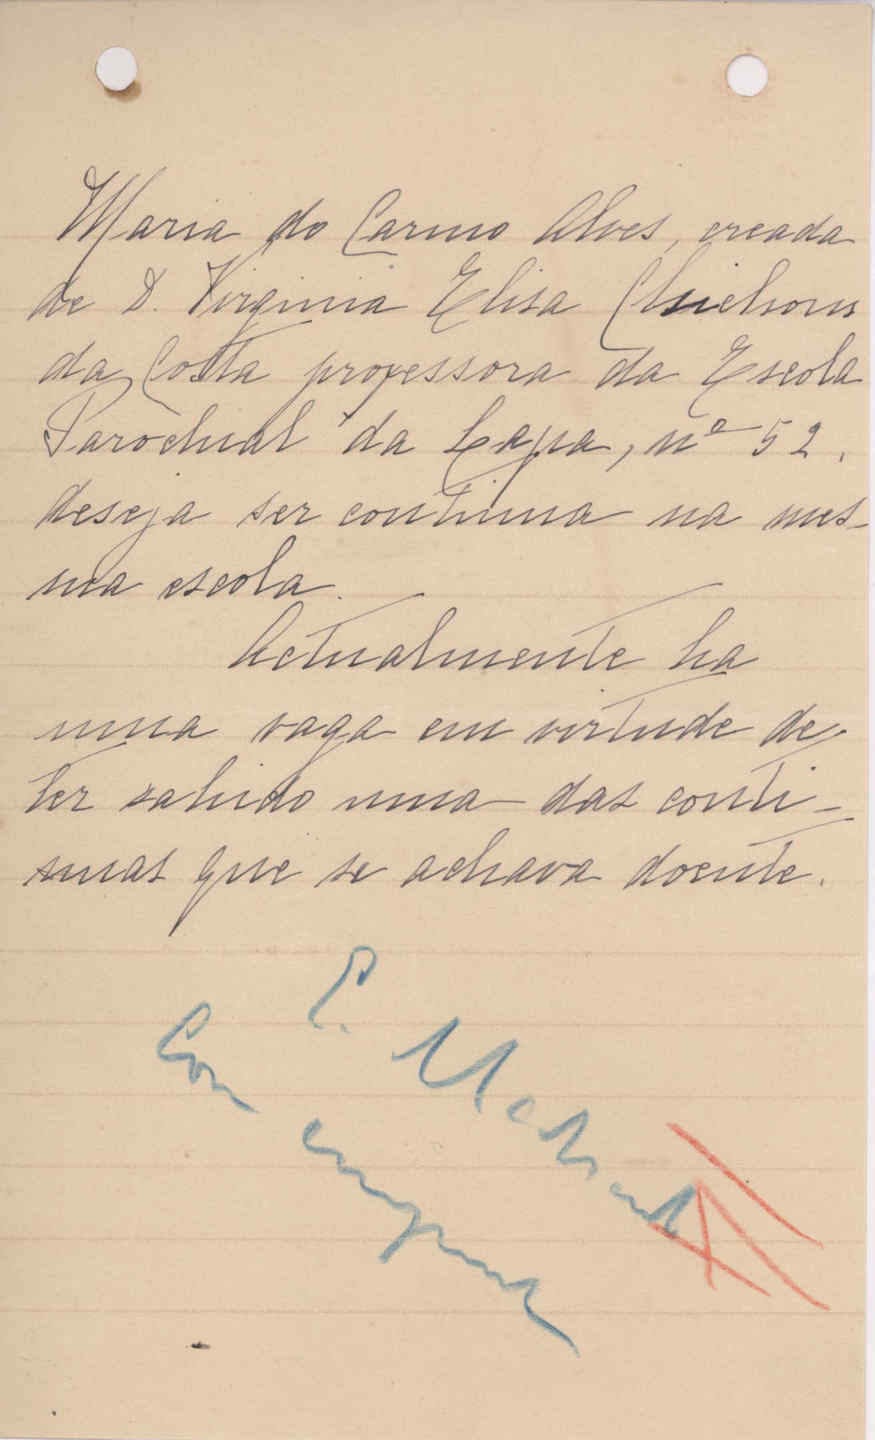 Maria do Carmo Alves, creada
de D. Virginia Elisa
da Costa professora da Escola
Parochial da Lapa, nº 52,
deseja ser continua na mes-
ma escola.
Actualmente ha
uma vaga em virtude de
ter sahido uma das conti-
nuas que se achava doente.
Com